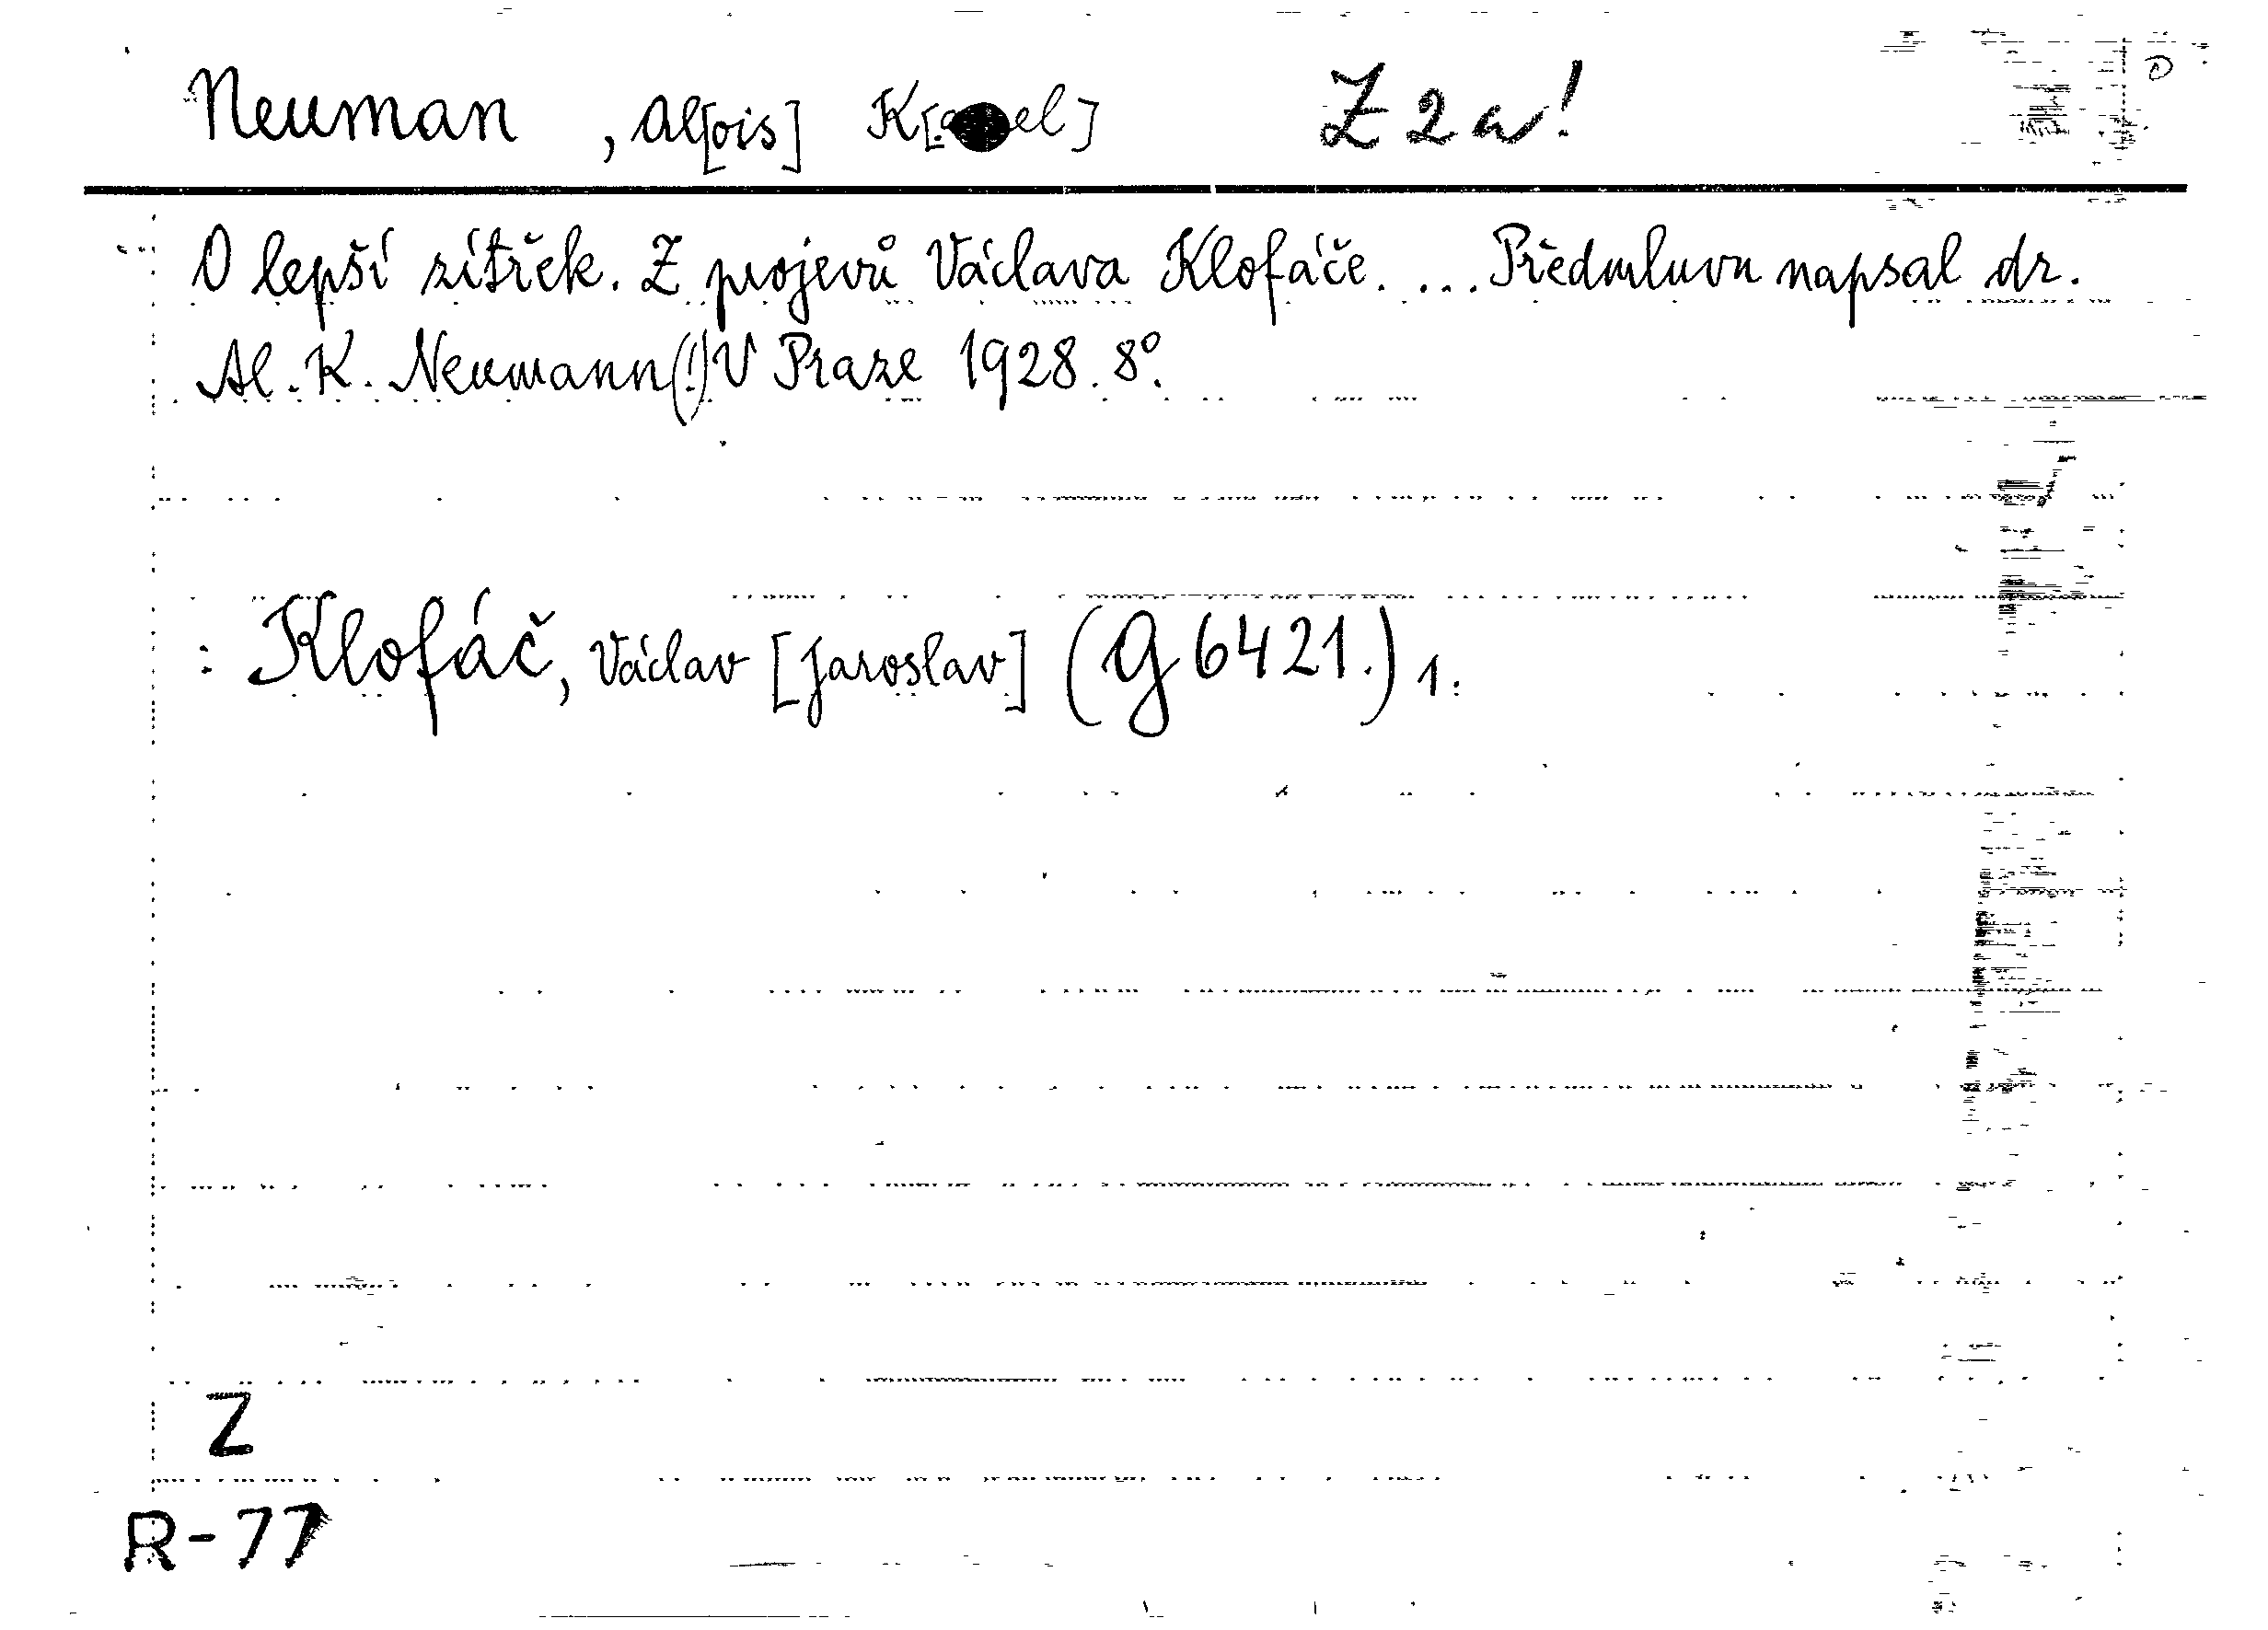 Neuman, Al[ois] Z2a!
O lepší zítřek. Z projevů Václava Klofáče. ... Předmluvu napsal dr.
Al. K. Neumann(!) V Praze 1928. 8°.
: Klofáč, Václav [Jaroslav] (G 6421.) 1.
Z
R-77